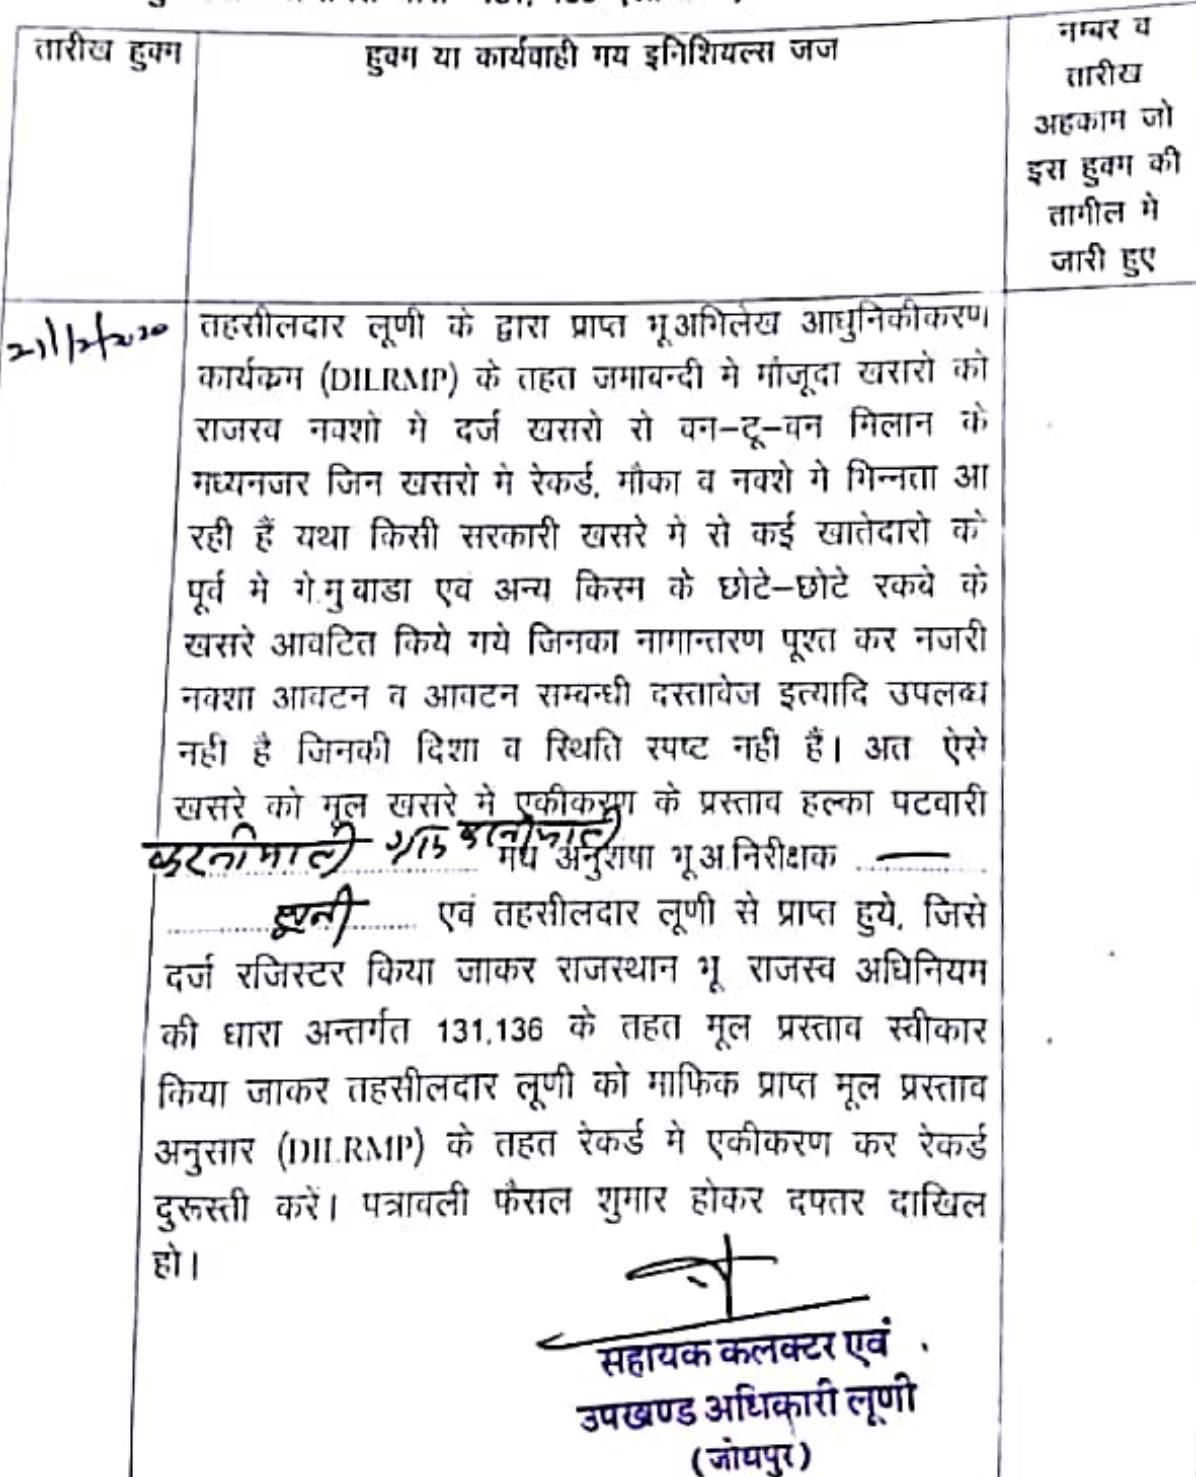 तारीख हुक्म
हुक्म या कार्यवाही मय इनिशियल्स जज
नम्बर व
तारीख
अहकाम जो
इस हुक्म की
तामील मे
जारी हुए
तहसीलदार लूणी के द्वारा प्राप्त भू अभिलेख आधुनिकीकरण
कार्यक्रम (DILRMP) के तहत जमाबन्दी मे मौजूदा खसरो को
राजस्व नक्शो मे दर्ज खसरो से वन–टू–वन मिलान के
मध्यनजर जिन खसरो मे रेकर्ड, मौका व नक्शे मे भिन्नता आ
रही हैं यथा किसी सरकारी खसरे मे से कई खातेदारो को
पूर्व मे गे.मु वाडा एवं अन्य किस्म के छोटे–छोटे रकबे के
खसरे आवटित किये गये जिनका नामान्तरण पूश्त कर नजरी
नक्शा आवटन व आवटन सम्बन्धी दस्तावेज इत्यादि उपलब्ध
नही है जिनकी दिशा व स्थिति स्पष्ट नही हैं। अत ऐसे
खसरे को मूल खसरे मे एकीकरण के प्रस्ताव हल्का पटवारी
मय अनुशषा भू.अ.निरीक्षक
एवं तहसीलदार लूणी से प्राप्त हुये, जिसे
दर्ज रजिस्टर किया जाकर राजस्थान भू राजस्व अधिनियम
की धारा अन्तर्गत 131,136 के तहत मूल प्रस्ताव स्वीकार
किया जाकर तहसीलदार लूणी को माफिक प्राप्त मूल प्रस्ताव
अनुसार (DILRMP) के तहत रेकर्ड मे एकीकरण कर रेकर्ड
दुरूस्ती करें। पत्रावली फैसल शुमार होकर दफ्तर दाखिल
हो।
सहायक कलक्टर एवं
उपखण्ड अधिकारी लूणी
(जोधपुर)